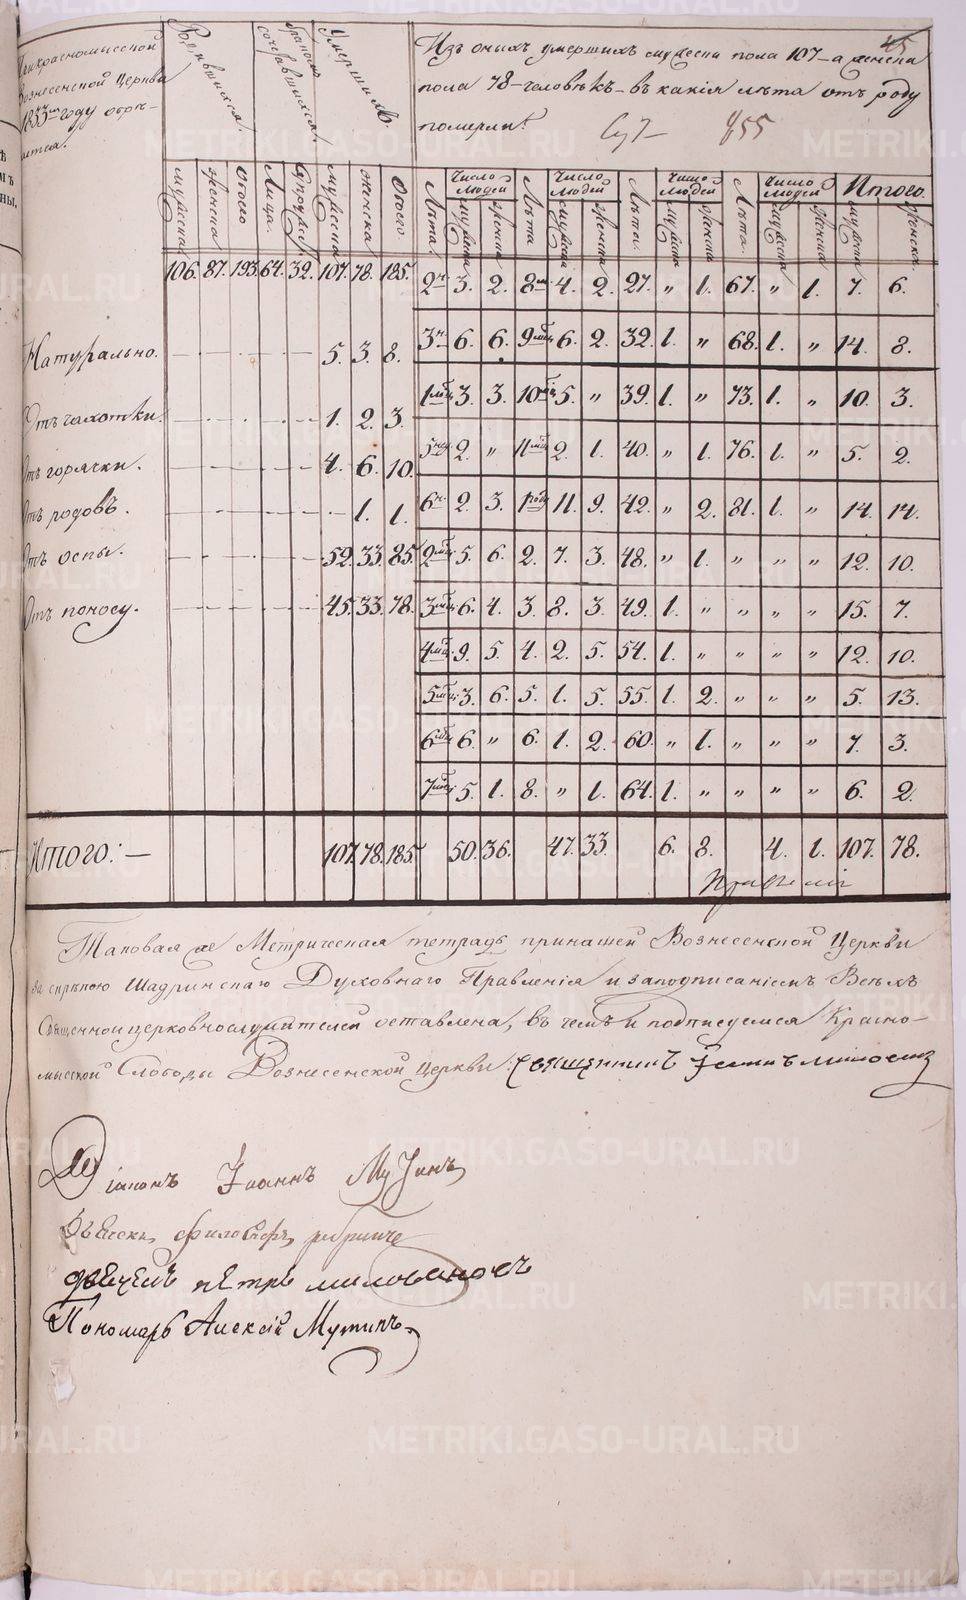 45
При красномысской
Вознесенской Церкви
1833 году
Родившихся.
сочетавшихся
Умершихъ.
Изъ оныхъ умершихъ мужеска пола 107 – а женска
пола 78 – человѣкъ – въ какія лѣта отъ роду
померли.
855
мужеска женска обоего Лица. мужеска женска Обоего.
Лѣта Число людей мужеска женска Лѣта Число людей мужеска женска Лѣта. Число людей мужеска женска Лѣта. Число людей мужеска женска Итого. мужеска женска.
106. 87. 193. 64. 32. 107. 78. 185.
2н 3. 2. 8м 4. 2. 27. " 1. 67. " 1. 7. 6.
Натурально. 5. 3. 8.
3н 6. 6. 9м 6. 2. 32. 1. " 68. 1. " 14. 8.
1мц 3. 3. 10мц 5. " 39. 1. " 73. 1. " 10. 3.
Отъ чахотки. 1. 2. 3.
5нед 2. " 11мц 2. 1. 40. " 1. 76. 1. " 5. 2.
Отъ горячки. 4. 6. 10.
6н. 2. 3. 1году 11. 9. 42. " 2. 81. 1. " 14. 14.
Отъ родовъ. 1. 1.
Отъ оспы. 52. 33. 85.
2мц 5. 6. 2. 7. 3. 48. " 1. " " " 12. 10.
Отъ поносу. 45. 33. 78.
3мц 6. 4. 3. 8. 3. 49. 1. " " " " 15. 7.
4мц 9. 5. 4. 2. 5. 54. 1. " " " " 12. 10.
5мц 3. 6. 5. 1. 5. 55. 1. 2. " " " 5. 13.
6мц 6. " 6. 1. 2. 60. " 1. " " " 7. 3.
7мц 5. 1. 8. " 1. 64. 1. " " " " 6. 2.
Итого: – 107. 78. 185. 50. 36. 47. 33. 6. 8. 4. 1. 107. 78.
Таковая же Метрическая тетрадь при нашей Вознесенской Церкви
за скрѣпою Шадринскаго Духовнаго Правленія и за подписаніемъ Всѣхъ
Священноицерковнослужителей оставлена, въ чемъ и подписуемся Красно-
мысской Слободы Вознесенской Церкви Священникъ
Діаконъ Іоаннъ
дьячекъ петръ
Пономарь Алексій
METRIKI.GASO-URAL.RU